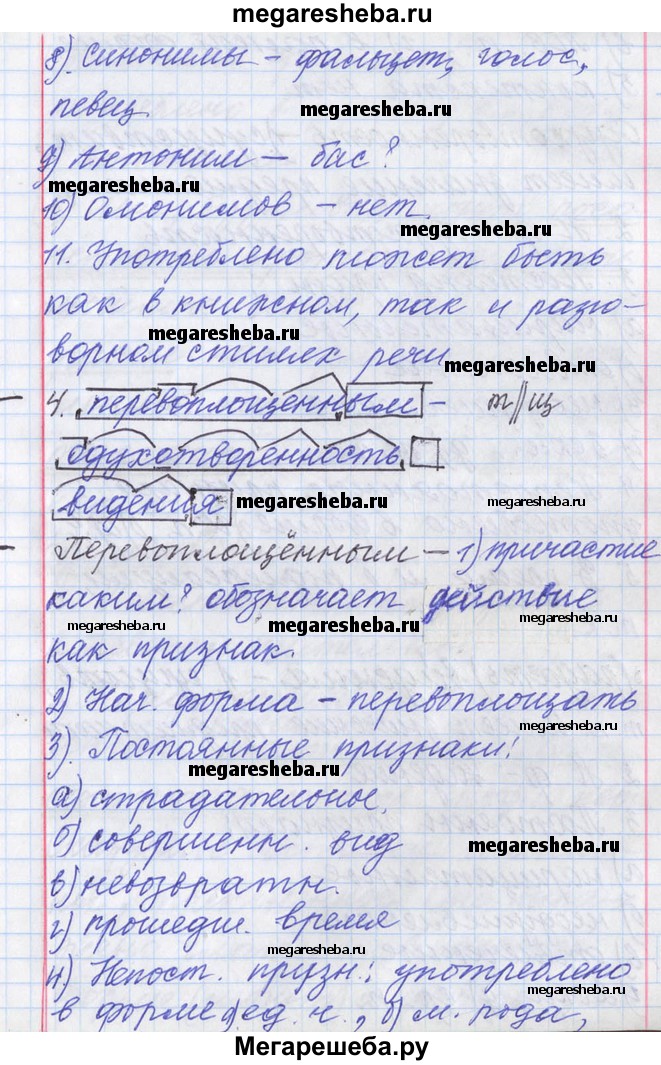 megaresheba.ru
8) Синонимы - фальцет, голос,
певец. megaresheba.ru
9) Антоним - бас?
megaresheba.ru
10) Омонимов - нет.
megaresheba.ru
11. Употреблено может быть
как в книжном, так и разго-
megaresheba.ru
ворном стилях речи megaresheba.ru
4. перевоплощенным - т//щ
одухотворенность
видения megaresheba.ru megaresheba.ru
Перевоплощённым - 1) причастие
каким? обозначает действие
megaresheba.ru megaresheba.ru megaresheba.ru
как признак.
2) Нач. форма - перевоплощать
megaresheba.ru
3). Постоянные признаки:
megaresheba.ru
а) страдательное,
б) совершенн. вид
megaresheba.ru
в) невозвратн.
г) прошедш. время
megaresheba.ru
4) Непост. призн.: употреблено
megaresheba.ru
в форме а) ед. ч., б) м. рода,
Мегарешеба.ру